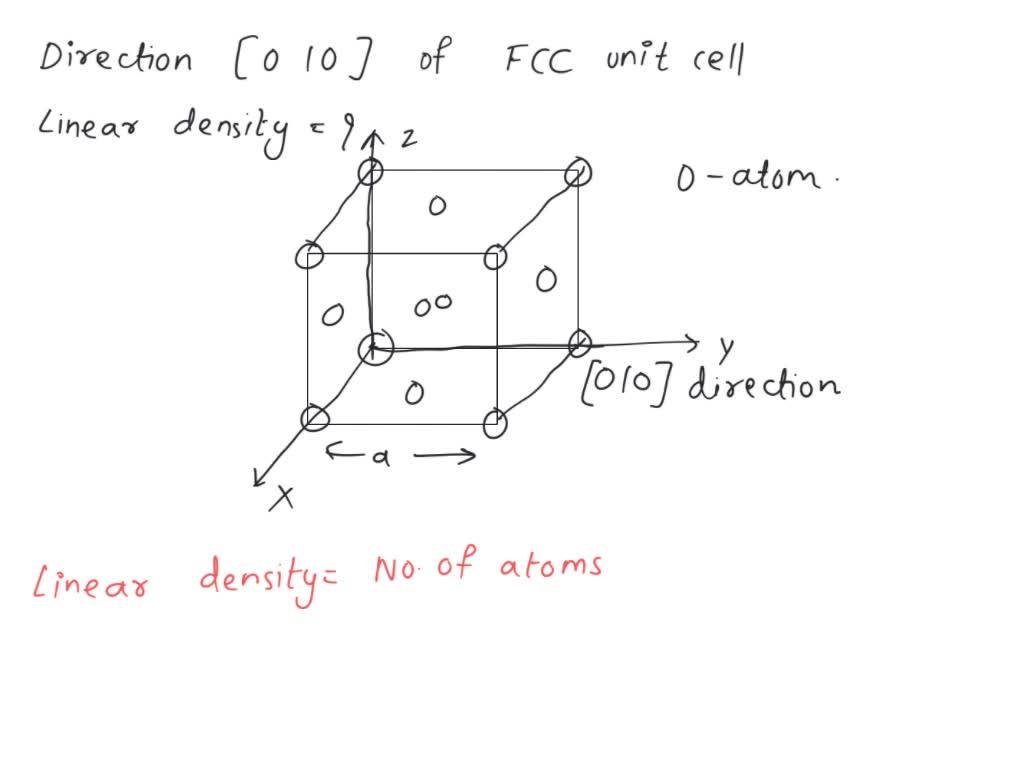 Direction [010] of FCC unit cell
Linear density = ?
z
O - atom.
y
[010] direction
a
X
Linear density = No. of atoms